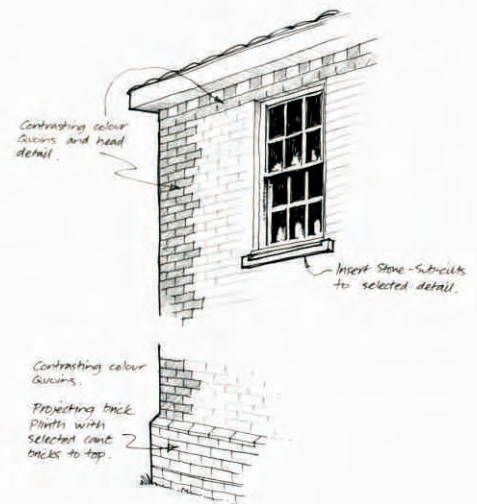 Contrasting colour
Quoins and head
detail.
Insert Stone-Sub-cills
to selected detail.
Contrasting colour
Quoins.
Projecting brick
Plinth with
selected cant
bricks to top.